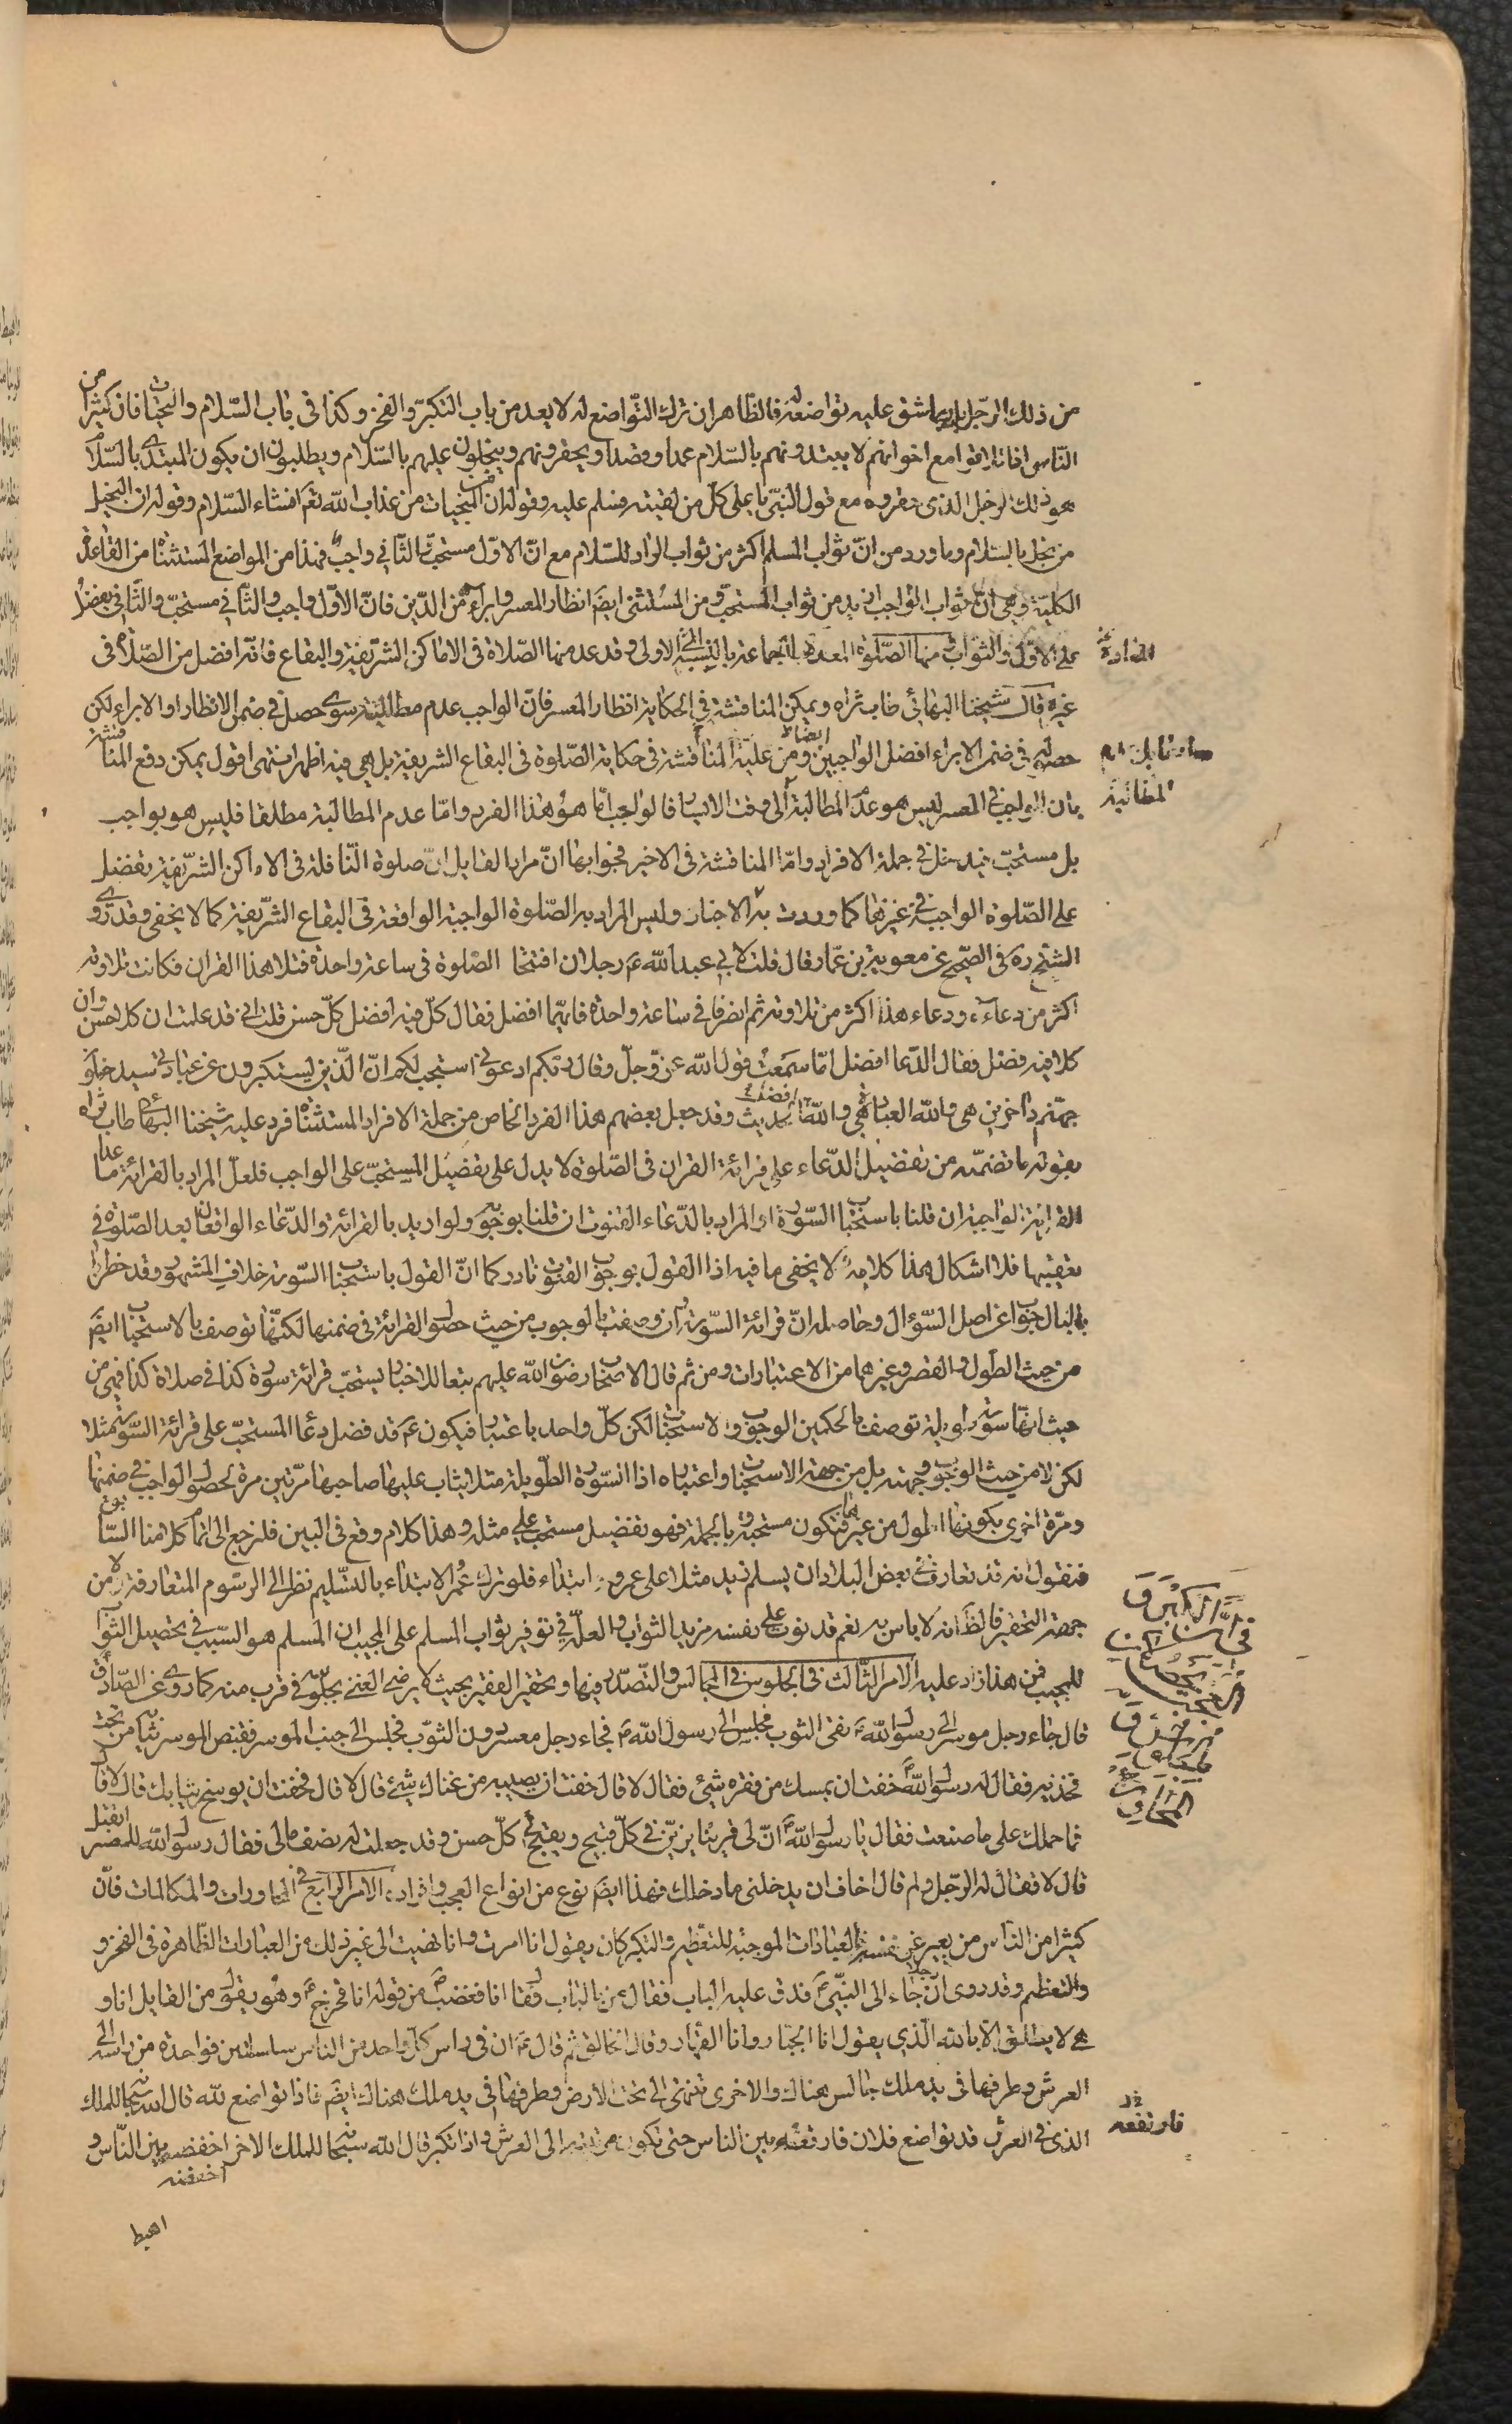 من ذلك الرّجل بل ربما شق عليه تواضعه له فالظاهر ان ترك التّواضع له لا يعد من باب التكبّر والفخر وكذا في باب السّلام والتحيّات فان كثيرا من
النّاس اذا تلاقوا مع اخوانهم لا يبتدونهم بالسّلام عمدا وقصدا ويحقرونهم ويبخلون عليهم بالسّلام ويطلبون ان يكون المبتدى بالسّلام
هو ذلك الرجل الذى حقروه مع قول النبيّ يا على كلّ من لقيته فسلم عليه وقوله ان من المنجيات من عذاب الله تعم افشاء السّلام وقوله ان البخيل
من بخل بالسّلام وما ورد من انّ ثواب المسلم اكثر من ثواب الراد للسّلام مع انّ الاوّل مستحبّ والثّاني واجب فهذا من المواضع المستثناة من القاعدة
الكليّة وهي انّ ثواب الواجب ازيد من ثواب المستحبّ ومن المستثنى ايضَ انظار المعسر وابراءه من الدّين فانّ الاوّل واجب والثّاني مستحبّ والثّاني يفضل
على الاوّل في الثّواب ومنها الصّلوة المعادة بالجماعة بالنسبة الى الاولى وقد عد منها الصّلاة في الاماكن الشرّيفة والبقاع فانّه افضل من الصّلاة في
غيره قال شيخنا البهائى طاب ثراه ويمكن المناقشة في الحكاية انظار المعسر فان الواجب عدم مطالبته سوى حصل في ضمن الانظار او الابراء لكن
حصوله في ضمن الابراء افضل الواجبين ايضا ومن عليه المناقشة في حكاية الصّلوة في البقاع الشريفة بل هي فيه اظهر انتهى اقول يمكن دفع المناقشة
بان الواجب في المعسر ليس هو عدم المطالبة الى وقت الايسار فالواجب انّما هو هذا الفرد وامّا عدم المطالبة مطلقا فليس هو بواجب
بل مستحبّ فيدخل في جملة الافراد وامّا المناقشة في الاخير فجوابها انّ مراد القايل انّ صلوة النّافلة في الاماكن الشرّيفة يفضل
على الصّلوة الواجب في غيرها كما وردت به الاخبار وليس المراد به الصّلوة الواجبة الواقعة في البقاع الشّريفة كما لا يخفى وقد روى
الشيخ ره في الصّحيح عن معوية بن عمّار قال قلت لابي عبد الله ع رجلان افتتحا الصّلوة في ساعة واحدة فتلا هذا القران فكانت تلاوته
اكثر من دعاءه ودعاء هذا اكثر من تلاوته ثم انصرفا في ساعة واحدة فايّهما افضل فقال كلّ فيه افضل كلّ حسن قلت انّي قد علمت ان كلا حسن وان
كلا فيه فضل فقال الدّعا افضل امّا سمعت قول الله عزّ وجلّ وقال ربّكم ادعوني استجب لكم انّ الّذين يستكبرون عن عبادتي سيدخلون
جهنّم داخرين هي والله العبادة هي والله افضل الحديث وقد جعل بعضهم هذا الفرد الخاص من جملة الافراد المستثناة فرد عليه شيخنا البهائي طاب ثراه
بقوله ما تضمّنه من تفضيل الدّعاء على قرائة القران في الصّلوة لا يدل على تفضيل المستحبّ على الواجب فلعلّ المراد بالقرائة ما عدا
القرائة الواجبة ان قلنا باستحباب السّورة او المراد بالدّعاء القنوت ان قلنا بوجوبه ولو اريد بالقرائة والدّعاء الواقعان بعد الصّلوة في
تعقيبها فلا اشكال هذا كلامه لا يخفى ما فيه اذا القول بوجوب القنوت نادر كما انّ القول باستحباب السّورة خلاف المشهور وقد خطر
بالبال جواب عن اصل السّؤال وحاصله انّ قرائة السّورة وان وصفت بالوجوب من حيث حصول القرائة في ضمنها لكنّها توصف بالاستحباب ايضَ
من حيث الطّول والقصر وغيرهما من الاعتبارات ومن ثم قال الاصحاب رضوان الله عليهم تبعا للاخبار يستحبّ قرائة سورة كذا في صلاة كذا فهي من
حيث انّها سورة طويلة توصف بالحكمين الوجوب والاستحباب لكن كلّ واحد باعتبار فيكون ع قد فضل دعا المستحبّ على قرائة السّورة مثلا
لكن لا من حيث الوجوب وجهته بل من جهة الاستحباب واعتباره اذا السّورة الطّويلة مثلا يثاب عليها صاحبها مرّتين مرة لحصول الواجب في ضمنها
ومرّة اخرى بكونها اطول من غيرها فتكون مستحبة وبالجملة فهو تفضيل مستحب على مثله وهذا كلام وقع في البين فلنرجع الى اتمام كلامنا السّابق
فنقول انه قد تعارف في بعض البلاد ان يسلم زيد مثلا على عمرو ابتداء فلو ترك عمرو الابتداء بالتسّليم نظر الى الرسّوم المتعارفة لا من
جهة التحقير فالظَ انه لا باس به نعم قد فوت على نفسه مزيد الثواب والعلّة في توفير ثواب المسلم على المجيب ان المسلم هو السّبب في تحصيل الثّواب
للمجيب فمن هذا زاد عليه الامر الثّالث في الجلوس في المجالس والتصّدر فيها وتحقير الفقير بحيث لا يرضى الغني بجلوسه في قرب منه كما روى عن الصّادق
قال جاء رجل موسر الى رسول الله ص نقى الثوب فجلس الى رسول الله ص فجاء رجل معسر درن الثّوب فجلس الى جنب الموسر فقبض الموسر ثيابه من تحت
فخذيه فقال له رسول الله ص خفت ان يمسك من فقره شيئ فقال لا قال خفت ان يصيبه من غناك شيئ قال لا قال فخفت ان يوسخ ثيابك قال لا قال
فما حملك على ما صنعت فقال يا رسول الله ص انّ لى قرينا يزيّن لي كلّ قبيح ويقبح لي كلّ حسن وقد جعلت له نصف مالي فقال رسول الله للمعسر اتقبل
قال لا فقال له الرّجل ولم قال اخاف ان يدخلني ما دخلك فهذا ايضَ نوع من انواع العجب وافراده الامر الرابع في المحاورات والمكالمات فانّ
كثيرا من النّاس من يعبر عن نفسه بالعبادات الموجبة للتعظيم والتكبر كان يقول انا امرت وانا نهيت الى غير ذلك من العبارات الظّاهرة في الفخر و
والتعظم وقد روى انّ رجلا جاء الى النّبيّ ص فدق عليه الباب فقال من بالباب فقال انا فغضب ص من قوله انا فخرج ص وهو يقول من القايل انا و
هي لا يطلق الا بالله الّذي يقول انا الجبّار وانا القهّار وقال الخالق ثم قال ع ان في راس كلّ واحد من الناس سلسلتين فواحدة من راسه الى
العرش وطرفها في يد ملك جالس هناك والاخرى تنتهى الى تحت الارض وطرفها في يد ملك هناك ايضَ فاذا تواضع لله قال الله سبحا للملك
الذى في العرش قد تواضع فلان فارفعه بين الناس حتى تكون مرتبته الى العرش واذا تكبر قال الله سبحا للملك الاخر اخفضه بين النّاس و
اخفضه
اهبط
المعادة
المطالبة
فارفعه